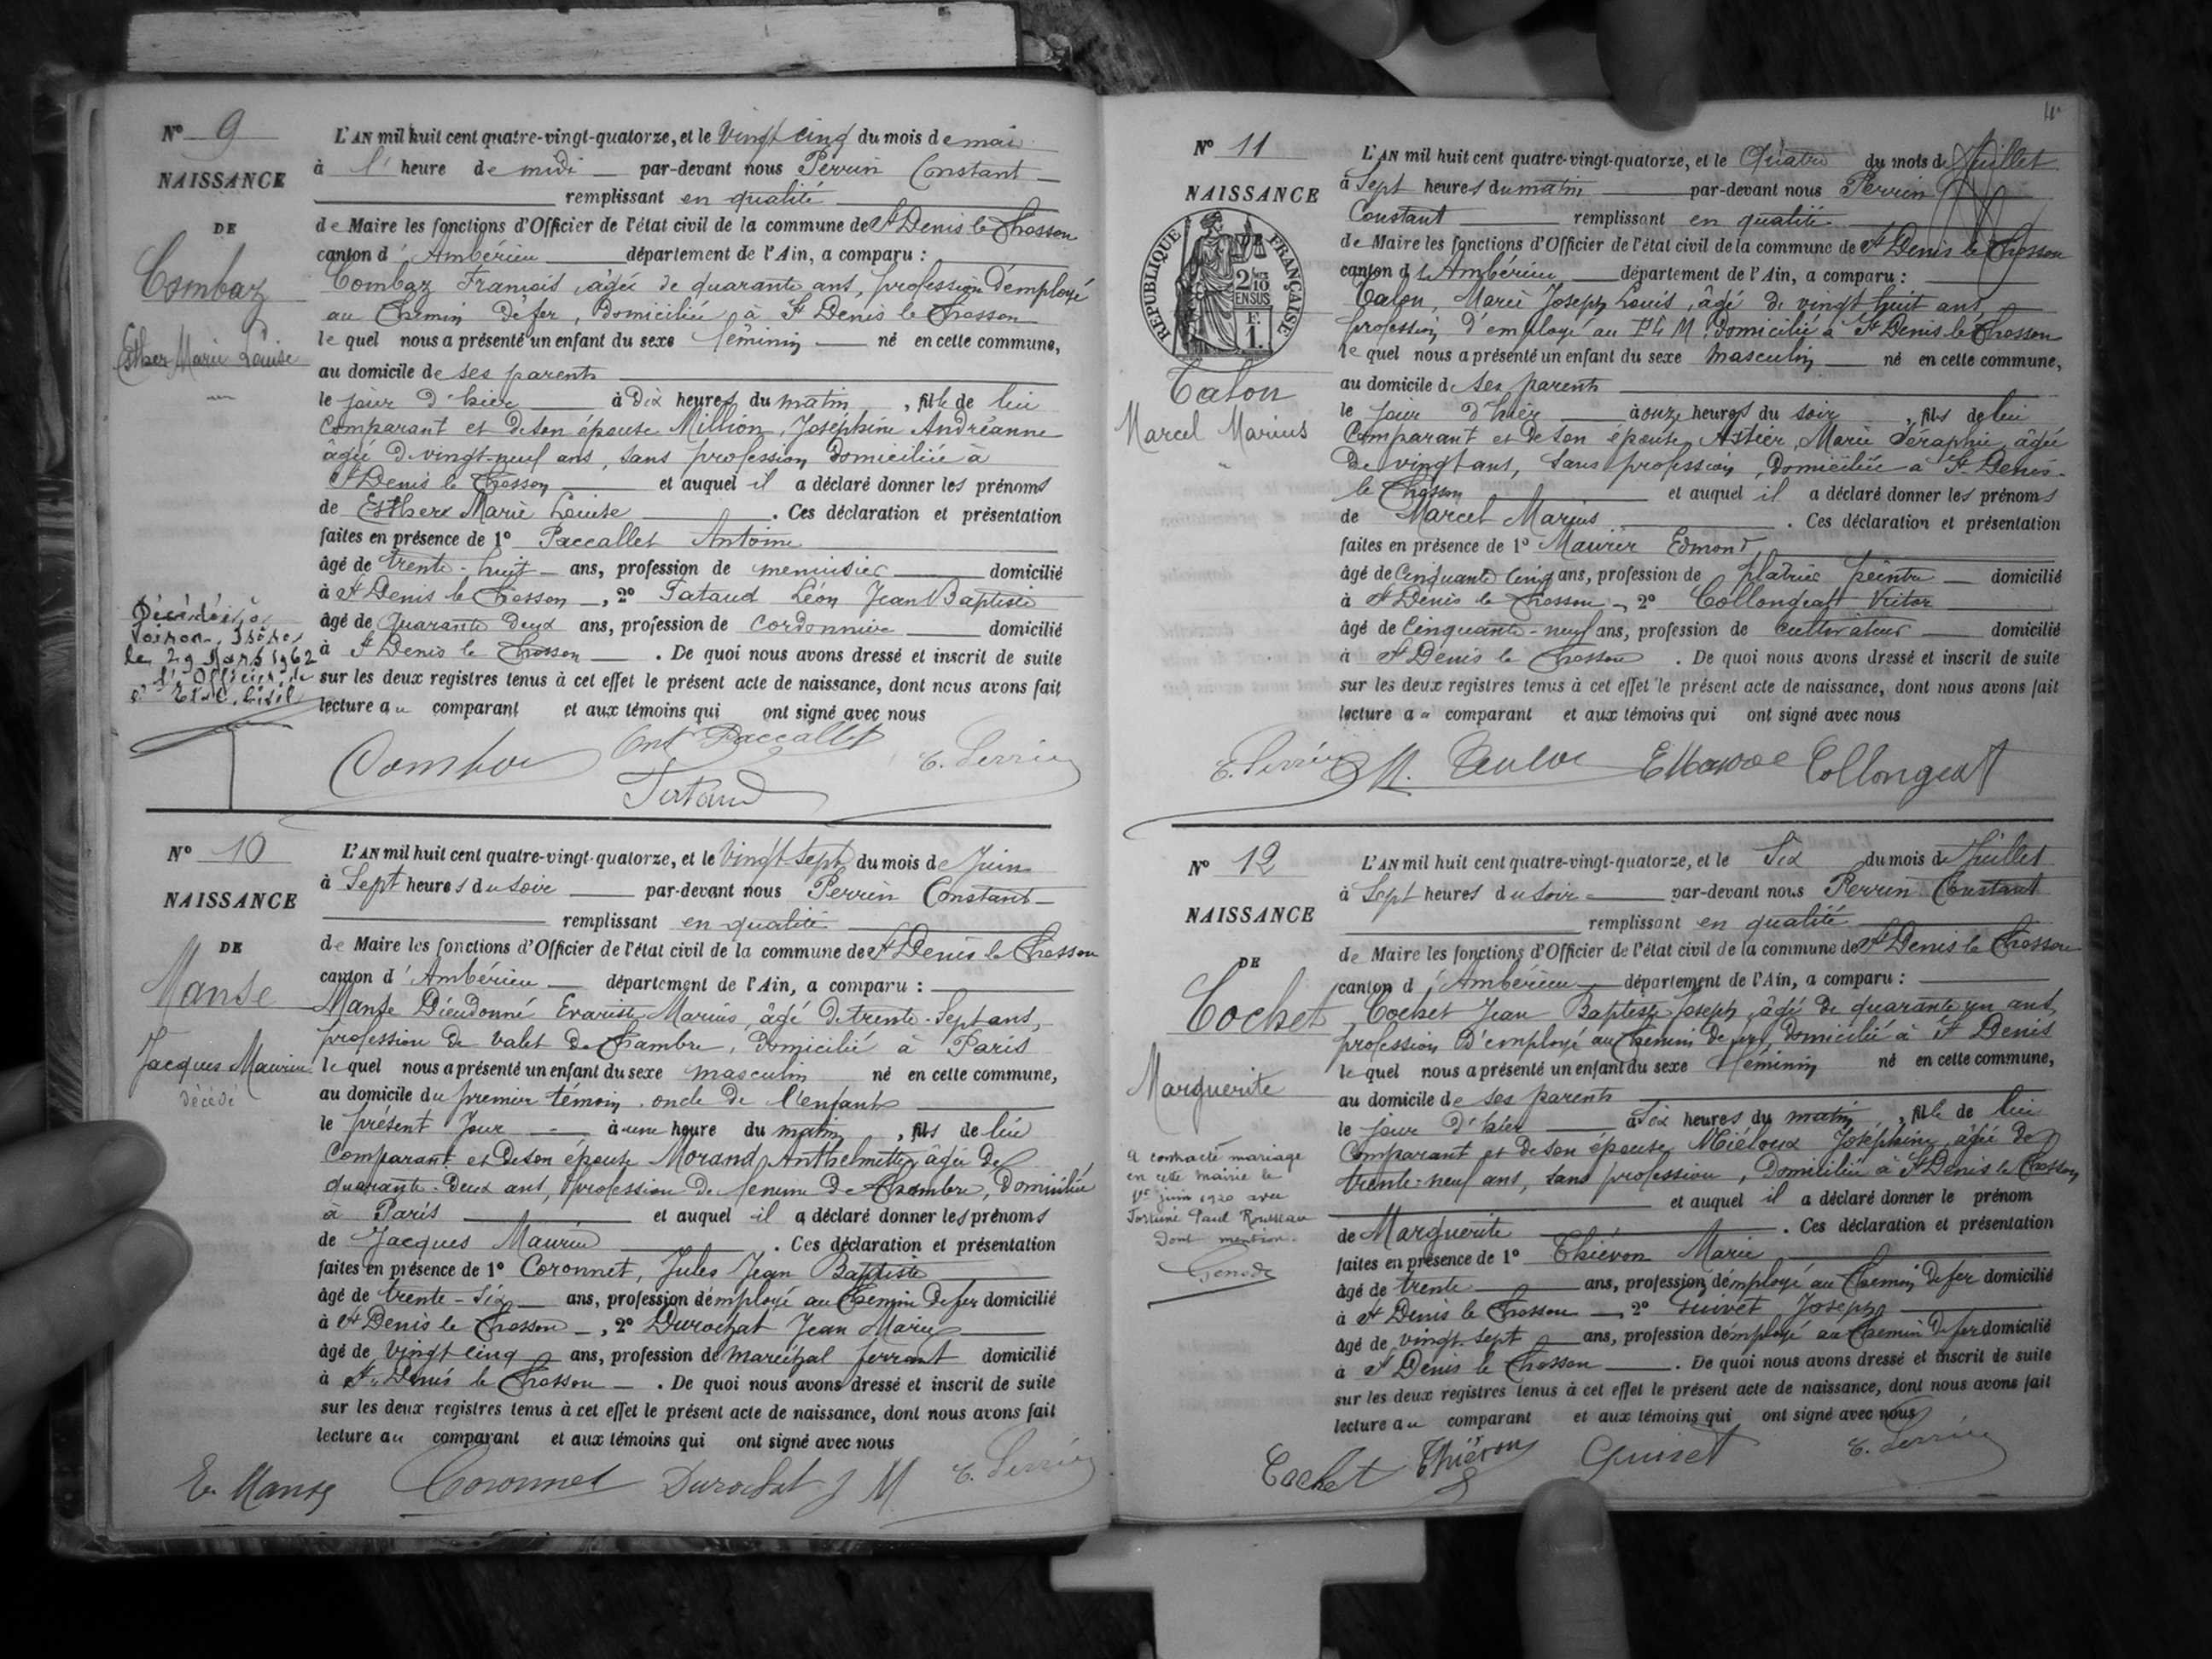 N° 9
NAISSANCE
DE
Combaz
Esther Marie Louise
Décédée à
Voiron, Isère,
le 29 Mars 1962
l'Officier de
l'Etat Civil
L'AN mil huit cent quatre-vingt-quatorze, et le Vingt cinq du mois de mai
à l' heure de midi par-devant nous Perrin Constant
remplissant en qualité
de Maire les fonctions d'Officier de l'état civil de la commune de St Denis le Chosson
canton d' Ambérieu département de l'Ain, a comparu :
Combaz François, âgé de quarante ans, profession d'employé
au Chemin de fer, domicilié à St Denis le Chosson
le quel nous a présenté un enfant du sexe féminin né en cette commune,
au domicile de ses parents
le jour d'hier à Dix heures du matin, fille de lui
Comparant et de son épouse Million, Joséphine Andréanne
âgée de vingt-neuf ans, sans profession domiciliée à
St Denis le Chosson et auquel il a déclaré donner les prénoms
de Esther Marie Louise. Ces déclaration et présentation
faites en présence de 1° Paccallet Antoine
âgé de trente-huit ans, profession de menuisier domicilié
à St Denis le Chosson, 2° Tataud Léon Jean Baptiste
âgé de Quarante Deux ans, profession de cordonnier domicilié
à St Denis le Chosson. De quoi nous avons dressé et inscrit de suite
sur les deux registres tenus à cet effet le présent acte de naissance, dont nous avons fait
lecture au comparant et aux témoins qui ont signé avec nous
Combaz Ant Paccallet C. Perrin
Tataud
N° 10
NAISSANCE
DE
Manse
Jacques Maurice
décédé
L'AN mil huit cent quatre-vingt-quatorze, et le Vingt Sept du mois de Juin
à Sept heures du soir par-devant nous Perrin Constant
remplissant en qualité
de Maire les fonctions d'Officier de l'état civil de la commune de St Denis le Chosson
canton d' Ambérieu département de l'Ain, a comparu :
Manse Dieudonné Evariste Marius, âgé de trente-Sept ans,
profession de Valet de Chambre, domicilié à Paris
le quel nous a présenté un enfant du sexe masculin né en cette commune,
au domicile du premier témoin, oncle de l'enfant
le présent Jour à une heure du matin, fils de lui
Comparant et de son épouse Morand Anthelmette, âgée de
quarante-Deux ans, profession de femme de Chambre, domiciliée
à Paris et auquel il a déclaré donner les prénoms
de Jacques Maurice. Ces déclaration et présentation
faites en présence de 1° Coronnet, Jules Jean Baptiste
âgé de trente-Six ans, profession d'employé au Chemin de fer domicilié
à St Denis le Chosson, 2° Durochat Jean Marie
âgé de Vingt cinq ans, profession de maréchal ferrant domicilié
à St Denis le Chosson. De quoi nous avons dressé et inscrit de suite
sur les deux registres tenus à cet effet le présent acte de naissance, dont nous avons fait
lecture au comparant et aux témoins qui ont signé avec nous
E. Manse Coronnet Durochat J M C. Perrin
N° 11
NAISSANCE
RÉPUBLIQUE FRANÇAISE
2/10 EN SUS
F. 1.
Talon
Marcel Marius
L'AN mil huit cent quatre-vingt-quatorze, et le Quatre du mois de Juillet
à Sept heures du matin par-devant nous Perrin
Constant remplissant en qualité
de Maire les fonctions d'Officier de l'état civil de la commune de St Denis le Chosson
canton d' Ambérieu département de l'Ain, a comparu :
Talon, Marie Joseph Louis, âgé de vingt huit ans,
profession d'employé au domicilié à St Denis le Chosson
le quel nous a présenté un enfant du sexe masculin né en cette commune,
au domicile de ses parents
le jour d'hier à onze heures du soir, fils de lui
Comparant et de son épouse, Astier, Marie Séraphie, âgée
de vingt ans, sans profession, domiciliée à St Denis-
le Chosson et auquel il a déclaré donner les prénoms
de Marcel Marius. Ces déclaration et présentation
faites en présence de 1° Maurier Edmond
âgé de Cinquante cinq ans, profession de platrier peintre domicilié
à St Denis le Chosson, 2° Collongeat Victor
âgé de Cinquante-neuf ans, profession de cultivateur domicilié
à St Denis le Chosson. De quoi nous avons dressé et inscrit de suite
sur les deux registres tenus à cet effet le présent acte de naissance, dont nous avons fait
lecture au comparant et aux témoins qui ont signé avec nous
C. Perrin Collongeat
N° 12
NAISSANCE
DE
Cochet
Marguerite
a contracté mariage
en cette mairie le
1er juin 1920 avec
Fortuné Paul Rousseau
Dont mention.
L'AN mil huit cent quatre-vingt-quatorze, et le Six du mois de Juillet
à Sept heures du soir par-devant nous Perrin Constant
remplissant en qualité
de Maire les fonctions d'Officier de l'état civil de la commune de St Denis le Chosson
canton d' Ambérieu département de l'Ain, a comparu :
Cochet Jean Baptiste Joseph, âgé de quarante un ans,
profession d'employé au Chemin de fer, domicilié à St Denis
le quel nous a présenté un enfant du sexe féminin né en cette commune,
au domicile de ses parents
le jour d'hier à Six heures du matin, fille de lui
Comparant et de son épouse Miéloux Joséphine, âgée de
trente-neuf ans, sans profession, domiciliée à St Denis le Chosson
et auquel il a déclaré donner le prénom
de Marguerite. Ces déclaration et présentation
faites en présence de 1° Thiévon Marie
âgé de trente ans, profession d'employé au Chemin de fer domicilié
à St Denis le Chosson, 2° Guivet Joseph
âgé de vingt-sept ans, profession d'employé au Chemin de fer domicilié
à St Denis le Chosson. De quoi nous avons dressé et inscrit de suite
sur les deux registres tenus à cet effet le présent acte de naissance, dont nous avons fait
lecture au comparant et aux témoins qui ont signé avec nous
Cochet Thiévon Guivet C. Perrin